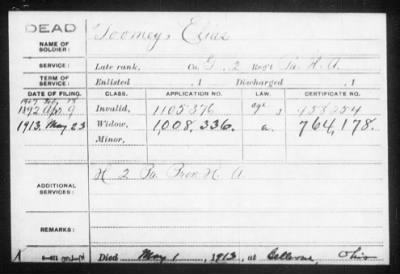 DEAD
NAME OF SOLDIER: Toomey, Elias
SERVICE: Late rank, Co. G, 2 Reg't Pa. H. A.
TERM OF SERVICE: Enlisted , 1 Discharged , 1
DATE OF FILING. CLASS. APPLICATION NO. LAW. CERTIFICATE NO.
1892 9 Invalid, 1105376
1913. May 23 Widow, 1,008,336. a. 764,178.
Minor,
ADDITIONAL SERVICES: H 2 Pa. Prov. H. A.
REMARKS:
Died May 1, 1913, at Bellevue, Ohio